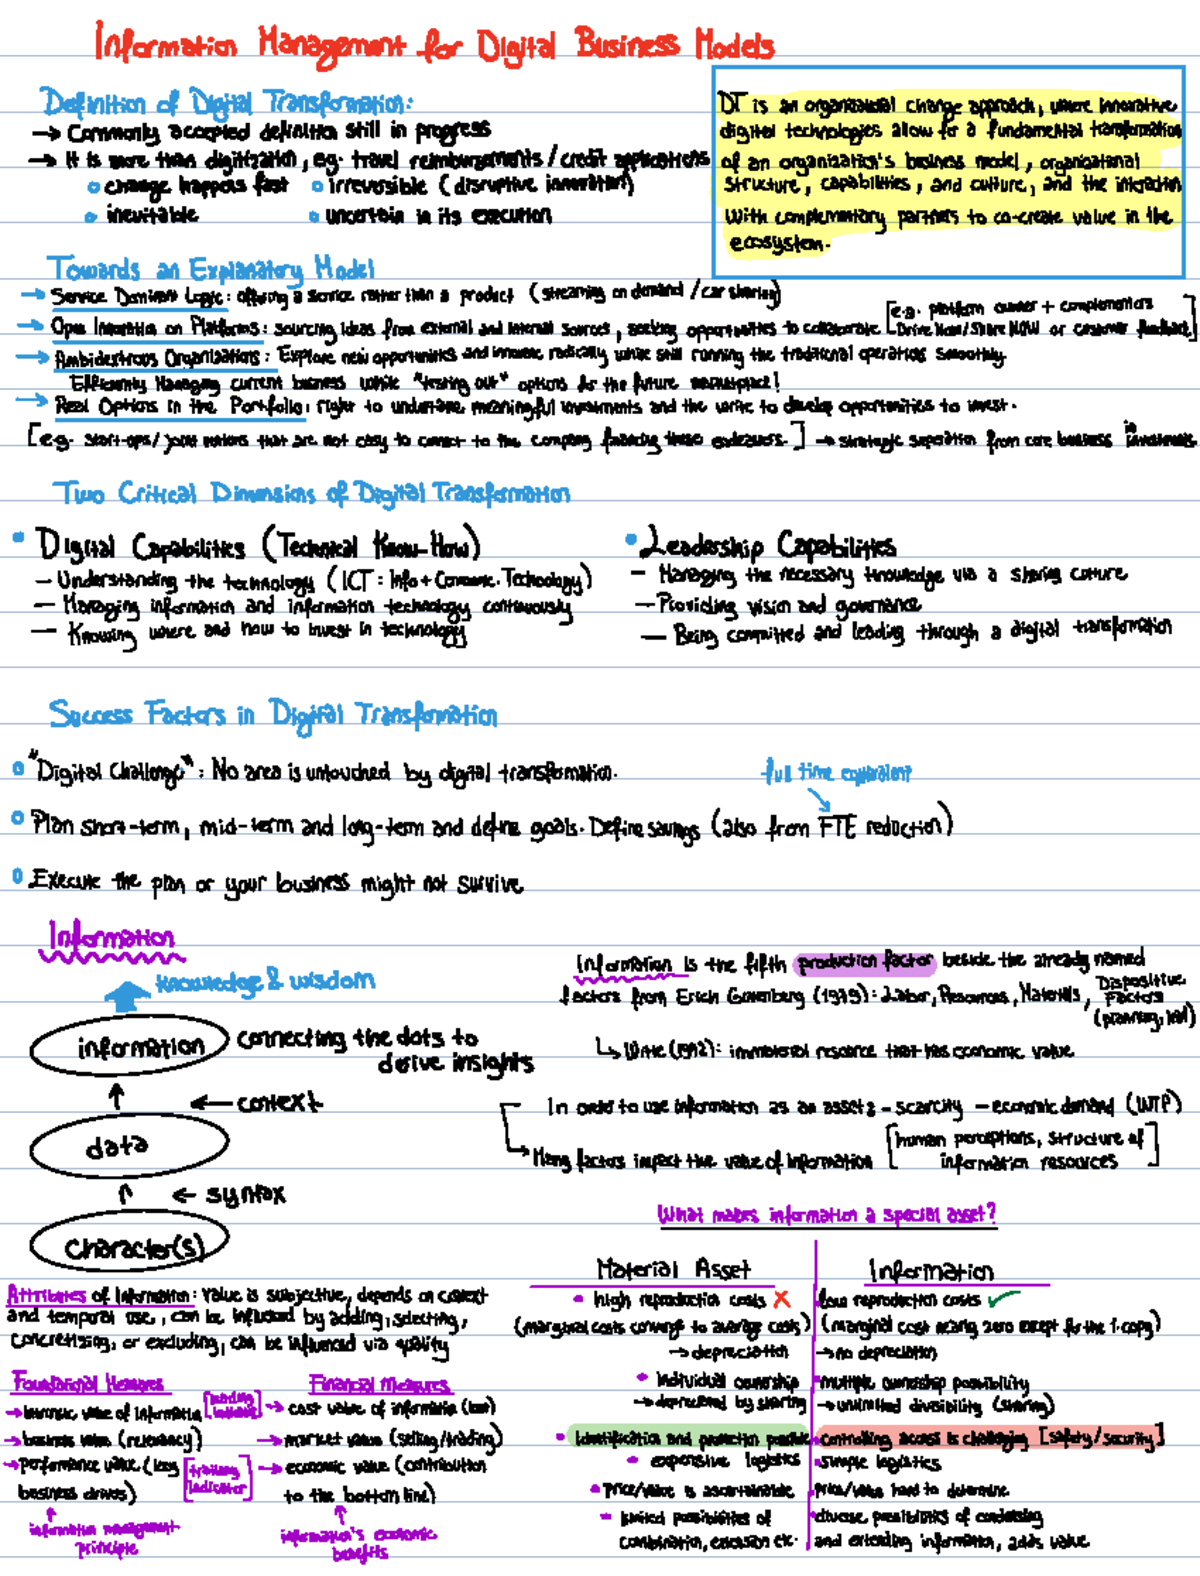 Information Management for Digital Business Models
Definition of Digital Transformation:
→ Commonly accepted definition still in progress
→ It is more than digitization, eg. travel reimbursements / credit applications
∘ change happens fast ∘ irreversible (disruptive innovation)
∘ inevitable ∘ uncertain in its execution
DT is an organizational change approach, where innovative
digital technologies allow for a fundamental transformation
of an organization's business model, organizational
structure, capabilities, and culture, and the interaction
with complementary partners to co-create value in the
ecosystem.
Towards an Explanatory Model
→ Service Dominant Logic: offering a service rather than a product (streaming on demand / car sharing)
→ Open Innovation on Platforms: sourcing ideas from external and internal sources, seeking opportunities to collaborate
[e.g. platform owner + complementors
Drive Now/Share Now or customer feedback]
→ Ambidextrous Organizations: Explore new opportunities and innovate radically while still running the traditional operations smoothly.
Efficiently Managing current business while "testing out" options for the future marketplace!
→ Real Options in the Portfolio: right to undertake meaningful investments and the write to develop opportunities to invest.
[e.g. start-ups/joint ventures that are not easy to connect to the company financing these endeavors.] → strategic seperation from core business in investments
Two Critical Dimensions of Digital Transformation
• Digital Capabilities (Technical Know-How)
– Understanding the technology (ICT: Info + Commun. Technology)
– Managing information and information technology continuously
– Knowing where and how to invest in technology
• Leadership Capabilities
– Managing the necessary knowledge via a sharing culture
– Providing vision and governance
– Being committed and leading through a digital transformation
Success Factors in Digital Transformation
∘ "Digital Challenge": No area is untouched by digital transformation.
full time equivalent
∘ Plan short-term, mid-term and long-term and define goals. Define savings (also from FTE reduction)
∘ Execute the plan or your business might not survive
Information
knowledge & wisdom
information
connecting the dots to
derive insights
← context
data
← syntax
character(s)
Information is the fifth production factor beside the already named
factors from Erich Gutenberg (1979): Labor, Resources, Materials, Dispositive
Factors
(planning,
↳ Witte (1972): immaterial resource that has economic value
In order to use information as an asset: – scarcity – economic demand (WTP)
Many factors impact the value of information [human perceptions, structure of
information resources]
What makes information a special asset?
Material Asset
• high reproduction costs ✗
(marginal costs converge to average costs)
→ depreciation
• individual ownership
→ depreciated by sharing
• Identification and protection possible
• expensive logistics
• price/value is ascertainable
• limited possibilities of
combination, extension etc.
Information
low reproduction costs ✓
(marginal cost nearing zero except for the 1.copy)
→ no depreciation
• multiple ownership possibility
→ unlimited divisibility (sharing)
• controlling access is challenging [safety/security]
• simple logistics
price/value hard to determine
• diverse possibilities of condensing
and extending information, adds value
Attributes of Information: Value is subjective, depends on context
and temporal use, can be influenced by adding, selecting,
concretizing, or excluding, can be influenced via quality
Foundational Measures
→ intrinsic value of information
→ business value (relevancy)
→ performance value (key
business drives)
information management
principle
[leading indicator]
[trailing
indicator]
Financial Measures
→ cost value of information
→ market value (selling/trading)
→ economic value (contribution
to the bottom line)
information's economic
benefits